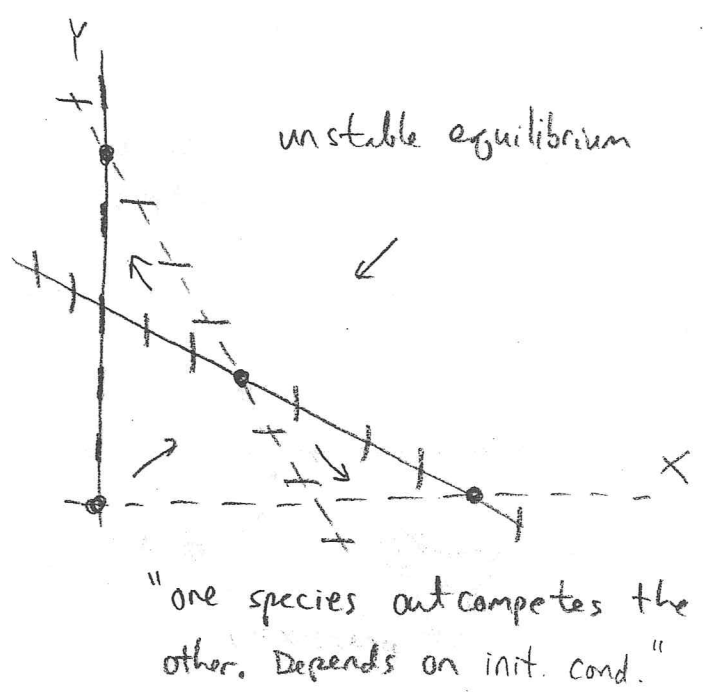 Y
unstable equilibrium
X
"one species outcompetes the
other. Depends on init. cond."